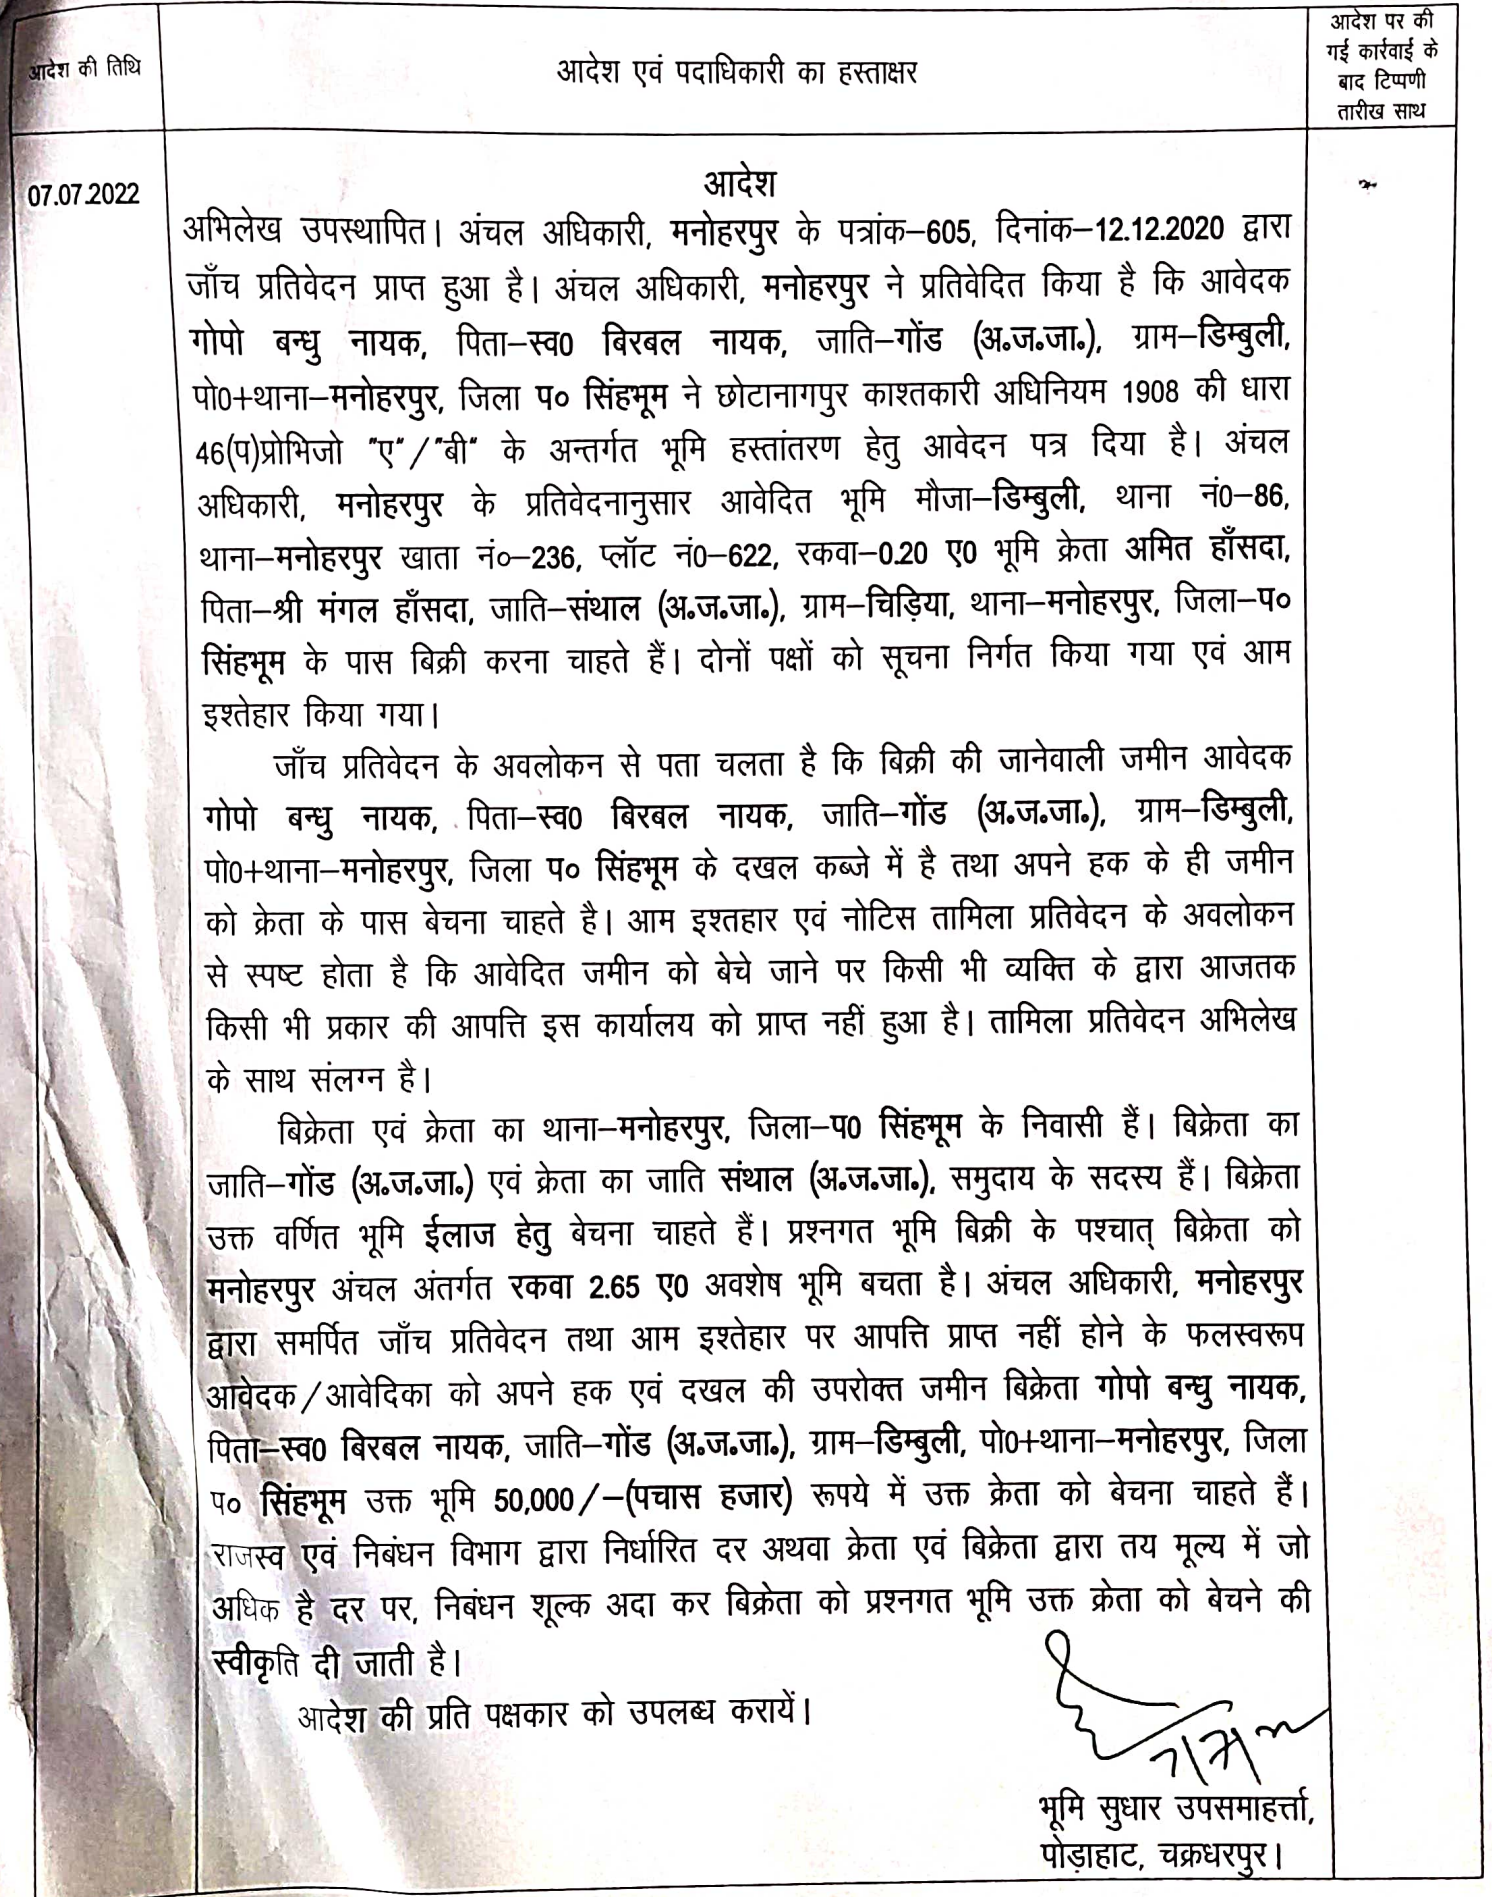 आदेश की तिथि
आदेश एवं पदाधिकारी का हस्ताक्षर
आदेश पर की
गई कार्रवाई के
बाद टिप्पणी
तारीख साथ
07.07.2022
आदेश
अभिलेख उपस्थापित। अंचल अधिकारी, मनोहरपुर के पत्रांक–605, दिनांक–12.12.2020 द्वारा
जाँच प्रतिवेदन प्राप्त हुआ है। अंचल अधिकारी, मनोहरपुर ने प्रतिवेदित किया है कि आवेदक
गोपो बन्धु नायक, पिता–स्व0 बिरबल नायक, जाति–गोंड (अ.ज.जा.), ग्राम–डिम्बुली,
पो0+थाना–मनोहरपुर, जिला प० सिंहभूम ने छोटानागपुर काश्तकारी अधिनियम 1908 की धारा
46(प)प्रोभिजो "ए"/"बी" के अन्तर्गत भूमि हस्तांतरण हेतु आवेदन पत्र दिया है। अंचल
अधिकारी, मनोहरपुर के प्रतिवेदनानुसार आवेदित भूमि मौजा–डिम्बुली, थाना नं0–86,
थाना–मनोहरपुर खाता नं०–236, प्लॉट नं0–622, रकवा–0.20 ए0 भूमि क्रेता अमित हाँसदा,
पिता–श्री मंगल हाँसदा, जाति–संथाल (अ.ज.जा.), ग्राम–चिड़िया, थाना–मनोहरपुर, जिला–प०
सिंहभूम के पास बिक्री करना चाहते हैं। दोनों पक्षों को सूचना निर्गत किया गया एवं आम
इश्तेहार किया गया।
जाँच प्रतिवेदन के अवलोकन से पता चलता है कि बिक्री की जानेवाली जमीन आवेदक
गोपो बन्धु नायक, पिता–स्व0 बिरबल नायक, जाति–गोंड (अ.ज.जा.), ग्राम–डिम्बुली,
पो0+थाना–मनोहरपुर, जिला प० सिंहभूम के दखल कब्जे में है तथा अपने हक के ही जमीन
को क्रेता के पास बेचना चाहते है। आम इश्तहार एवं नोटिस तामिला प्रतिवेदन के अवलोकन
से स्पष्ट होता है कि आवेदित जमीन को बेचे जाने पर किसी भी व्यक्ति के द्वारा आजतक
किसी भी प्रकार की आपत्ति इस कार्यालय को प्राप्त नहीं हुआ है। तामिला प्रतिवेदन अभिलेख
के साथ संलग्न है।
बिक्रेता एवं क्रेता का थाना–मनोहरपुर, जिला–प0 सिंहभूम के निवासी हैं। बिक्रेता का
जाति–गोंड (अ.ज.जा.) एवं क्रेता का जाति संथाल (अ.ज.जा.), समुदाय के सदस्य हैं। बिक्रेता
उक्त वर्णित भूमि ईलाज हेतु बेचना चाहते हैं। प्रश्नगत भूमि बिक्री के पश्चात् बिक्रेता को
मनोहरपुर अंचल अंतर्गत रकवा 2.65 ए0 अवशेष भूमि बचता है। अंचल अधिकारी, मनोहरपुर
द्वारा समर्पित जाँच प्रतिवेदन तथा आम इश्तेहार पर आपत्ति प्राप्त नहीं होने के फलस्वरूप
आवेदक/आवेदिका को अपने हक एवं दखल की उपरोक्त जमीन बिक्रेता गोपो बन्धु नायक,
पिता–स्व0 बिरबल नायक, जाति–गोंड (अ.ज.जा.), ग्राम–डिम्बुली, पो0+थाना–मनोहरपुर, जिला
प० सिंहभूम उक्त भूमि 50,000/–(पचास हजार) रूपये में उक्त क्रेता को बेचना चाहते हैं।
राजस्व एवं निबंधन विभाग द्वारा निर्धारित दर अथवा क्रेता एवं बिक्रेता द्वारा तय मूल्य में जो
अधिक है दर पर, निबंधन शूल्क अदा कर बिक्रेता को प्रश्नगत भूमि उक्त क्रेता को बेचने की
स्वीकृति दी जाती है।
आदेश की प्रति पक्षकार को उपलब्ध करायें।
भूमि सुधार उपसमाहर्त्ता,
पोड़ाहाट, चक्रधरपुर।